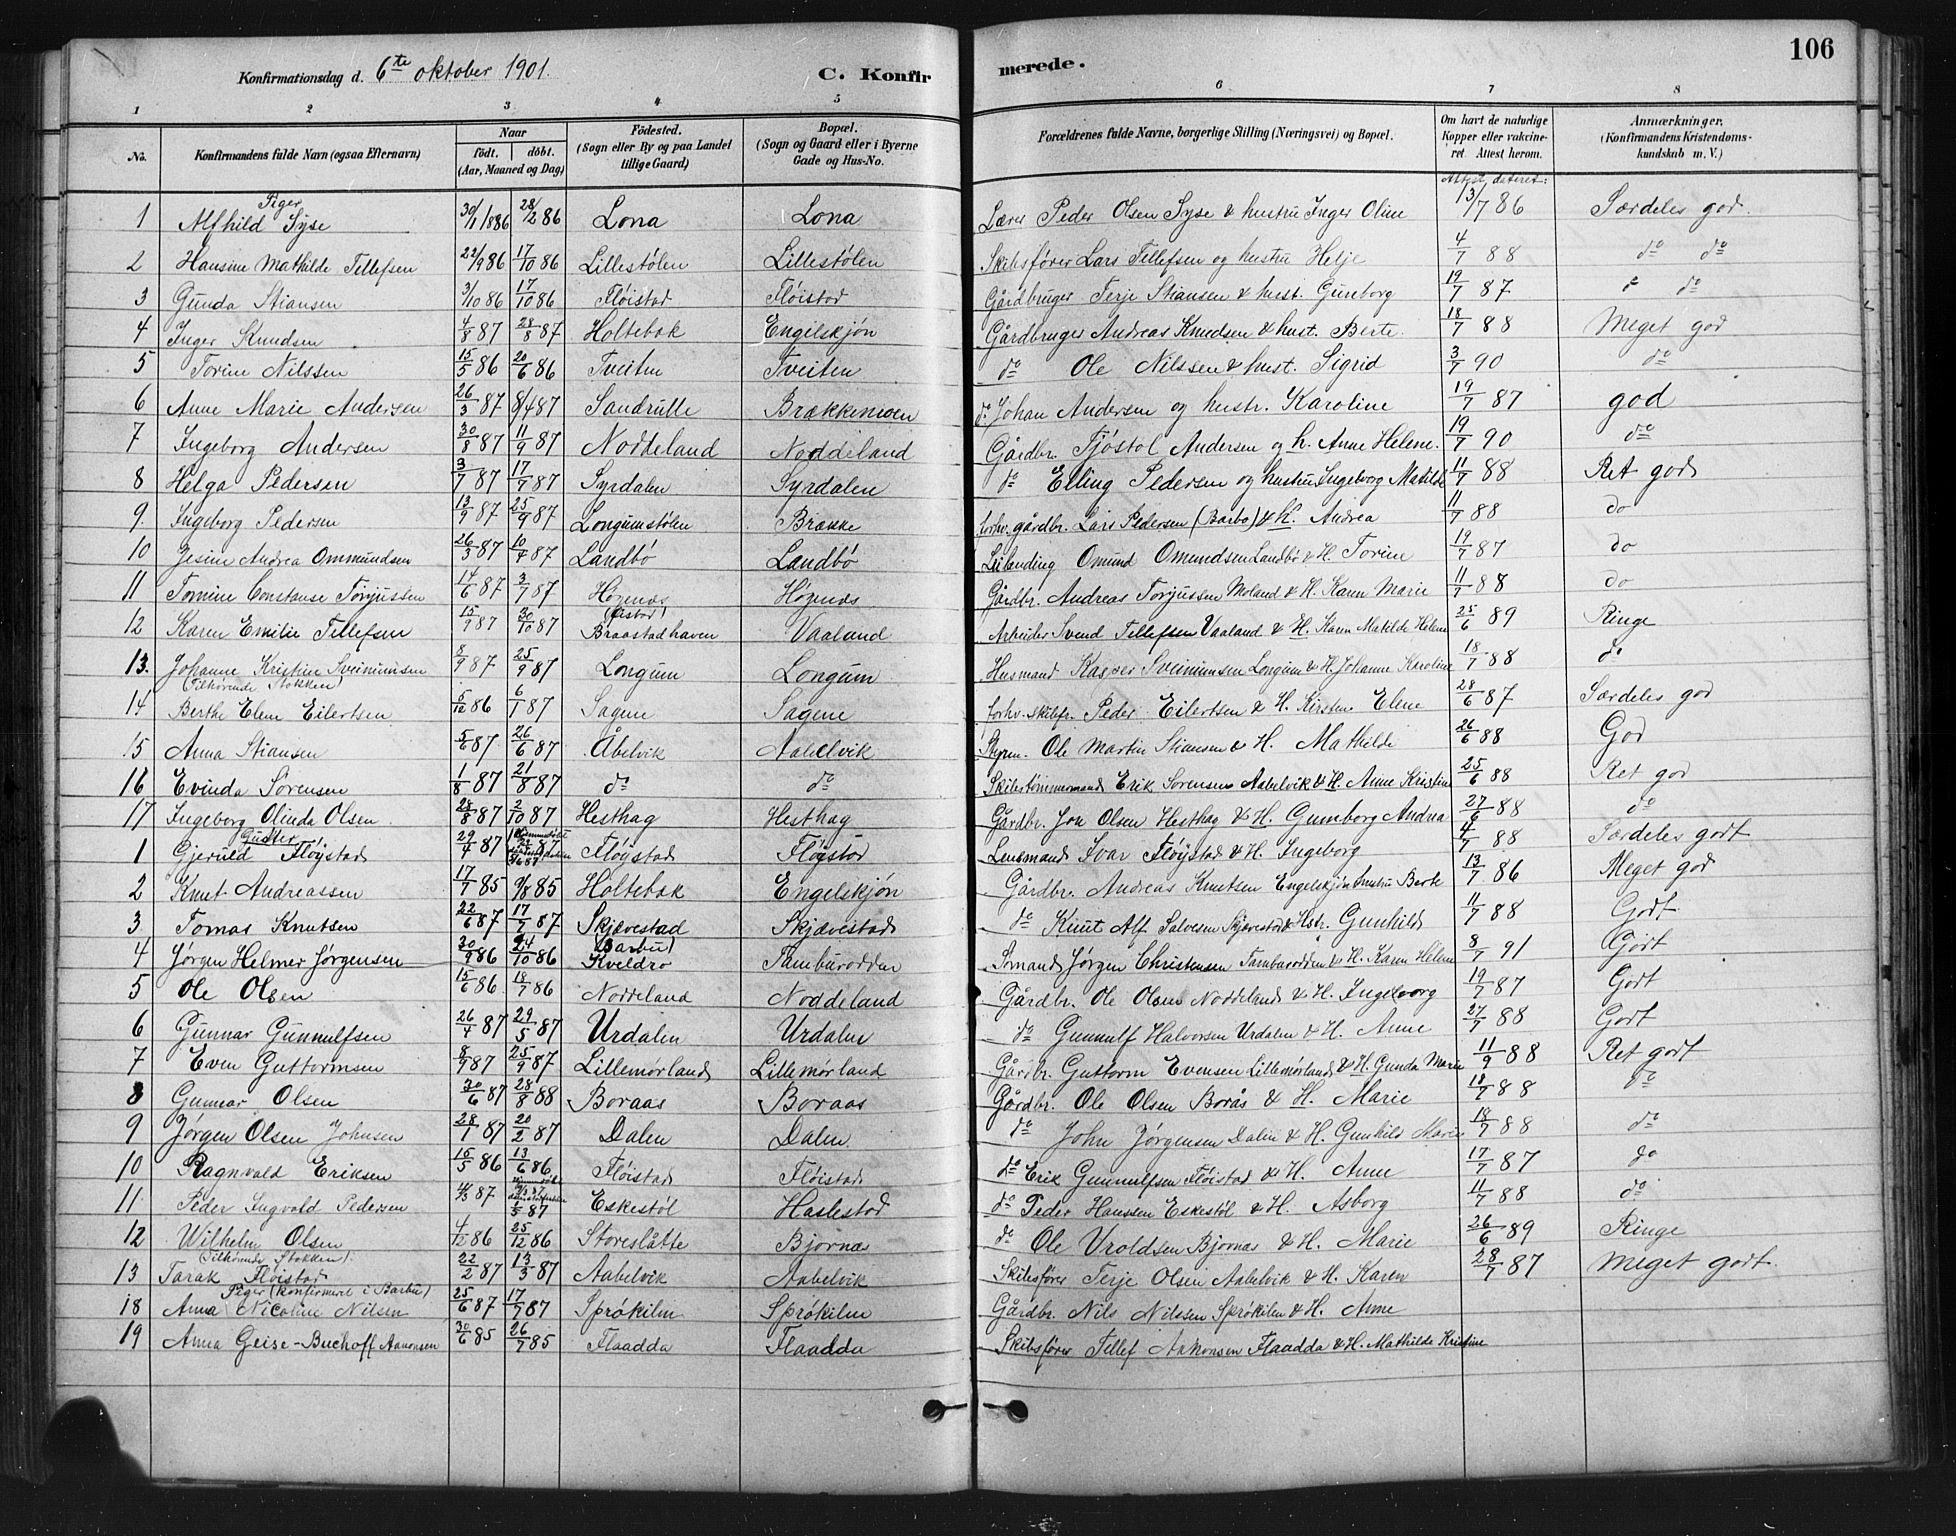 106
Konfirmationsdag d. 6te oktober 1901. C. Konfir merede.
1 2 3 4 5 6 7 8
No. Konfirmandens fulde Navn (ogsaa Efternavn) Naar født. døbt. (Aar, Maaned og Dag) Födested. (Sogn eller By og paa Landet tillige Gaard) Bopæl. (Sogn og Gaard eller i Byerne Gade og Hus-No. Forældrenes fulde Navne, borgerlige Stilling (Næringsvei) og Bopæl. Om havt de naturlige Kopper eller vakcineret. Attest herom. Anmærkninger. (Konfirmandens Kristendomskundskab m. V.)
Piger Attest dateret:
1 Alfhild Syse 30/1 1886 28/2 86 Lona Lona Lærer Peder Olsen Syse & hustru Inger Oline 13/7 86 Særdeles god.
2 Hansine Mathilde Tellefsen 22/9 86 17/10 86 Lillestølen Lillestølen Skibsfører Lars Tellefsen og hustru Helje 4/7 88 do do
3 Gunda Stiansen 3/10 86 17/10 86 Fløistad Fløistad Gårdbruger Terje Stiansen & hust. Gunborg 19/7 87 do do
4 Inger Knudsen 4/8 87 28/8 87 Holtebak Engelskjøn Gårdbruger Andreas Knudsen & hust. Berte. 18/7 88 Meget god
5 Torine Nilssen 15/5 86 20/6 86 Tveiten Tveiten do Ole Nilssen & hust. Sigrid 3/7 90 do
6 Anne Marie Andersen 26/3 87 8/4 87 Sandrutle Brækkemoen do Johan Andersen og hustr. Karoline 19/7 87 god
7 Ingeborg Andersen 30/8 87 11/9 87 Noddeland Noddeland Gårdbr. Tjøstol Andersen og h. Anne Helene. 19/7 90 do
8 Helga Pedersen 3/7 87 17/7 87 Syrdalen Syrdalen do Elling Pedersen og hustru Ingeborg Matilde 11/7 88 Ret god
9. Ingeborg Pedersen 13/9 87 25/9 87 Longumstølen Brække forhv. gårdbr. Lars Pedersen (Barbo) & H. Andrea 11/7 88 do
10 Jesine Andrea Ommundsen 26/3 87 10/4 87 Landbø Landbø Leilending Omund Omundsen Landbø & H. Torine 19/7 87 do
11 Tomine Constanse Torjussen 14/6 87 3/7 87 Høgenæs Høgenæs Gårdbr. Andreas Torjussen Moland & H. Karen Marie 11/7 88 do
12 Karen Emilie Tellefsen 15/9 87 30/10 87 Braastadhaven Vaaland Arbeider Svend Tellefsen Vaaland & H. Karen Matilde Helene 25/6 89 Ringe
13. Johanne Kristine Sveinunsen 8/9 87 25/9 87 Longum Longum Husmand Kasper Sveinunsen Longum & H. Johanne Karoline 18/7 88 do
(Tilhørende Stokken)
14 Berthe Elene Eilertsen 5/12 86 6/1 87 Sagene Sagene forhv. skibsfr. Peder Eilertsen & H. Kirsten Elene 28/6 87 Særdeles god
15 Anna Stiansen 5/6 87 26/6 87 Åbelvik Aabelvik Styrm. Ole Martin Stiansen & H. Mathilde 26/6 88 God
16 Evinda Sørensen 1/8 87 21/8 87 do do Skibstømmermand Erik Sørensen Aabelvik & H. Anne Kristine 25/6 88 Ret god
17 Ingeborg Olinda Olsen. 28/8 87 2/10 87 Hesthag Hesthag Gårdbr. Jon Olsen Hesthag & H. Gunborg Andrea 27/6 88 do
Gutter
1 Gjeruld Fløystad 29/4 87 Fløystad Fløystad Lensmand Ivar Fløystad & H. Ingeborg 4/7 88 Særdeles godt
2 Knut Andreassen 17/7 85 9/8 85 Holtebak Engelskjøn Gårdbr. Andreas Knutsen Engelskjøn hustru Berte 13/7 86 Meget god
3 Tomas Knutsen 22/6 87 17/7 87 Skjævestad Skjævestad do Knut Alf Salvesen Skjævestad & Hstr. Gunhild 11/7 88 Godt
4 Jørgen Helmer Jørgensen 30/9 86 24/10 86 (Barbu) Kveldro Tamburodden Sømand Jørgen Christensen Tamburodden & H. Karen Helene 8/7 91 Godt
5 Ole Olsen 15/6 86 18/7 86 Noddeland Noddeland Gårdbr. Ole Olsen Noddeland & H. Ingeborg 19/7 87 Godt
6 Gunnar Gunnulfsen 26/4 87 29/5 87 Urdalen Urdalen do Gunnulf Halvorsen Urdalen & H. Anne 27/7 88 Godt
7 Even Guttormsen 8/9 87 25/9 87 Lillemørland Lillemørland Gårdbr. Guttorm Evensen Lillemørland & H. Gunda Marie 11/9 88 Ret godt
8 Gunnar Olsen 30/6 87 28/8 88 Boraas Boraas Gårdbr. Ole Olsen Borås & H. Marie 18/7 88 do
9 Jørgen Olsen Johnsen 28/1 87 20/2 87 Dalen Dalen do John Jørgensen Dalen & H. Gunhild Marie 18/7 88 do
10 Ragnvald Eriksen 15/5 86 13/6 86 Fløistad Fløistad do Erik Gunnulfsen Fløistad & H. Anne 17/7 87 do
11 Peder Ingvald Pedersen 14/3 87 Eskestøl Haslestad do Peder Hanssen Eskestøl & H. Asborg 11/7 88 do
12 Wilhelm Olsen 4/12 86 25/12 86 Storeslåtte Bjornæs do Ole Vroldsen Bjornæs & H. Marie 26/6 89 Ringe
(Tilhørende Stokken)
13 Tarak Fløistad 22/2 87 13/3 87 Aabelvik Aabelvik Skibsfører Terje Olsen Aabelvik & H. Karen 28/7 87 Meget godt.
Piger (konfirmeret i Barbu)
18 Anna Nicoline Nilsen 25/6 87 17/7 87 Sprøkilen Sprøkilen Gårdbr. Nils Nilssen Sprøkilen & H. Anne
19 Anna Geise-Buchoff Aanonsen 30/6 85 26/7 85 Flaadda Flaadda Skibsfører Tellef Aanonsen Flaadda & H. Mathilde Kristine